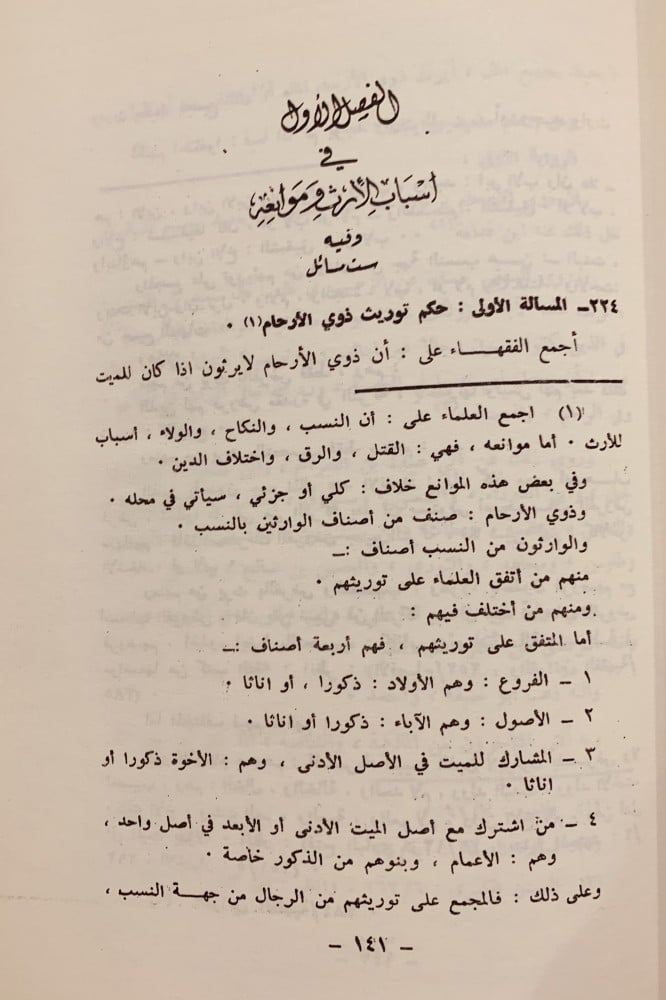 الفصل الأول
في
أسباب الإرث وموانعه
وفيه
ست مسائل
٢٢٤ـ المسالة الأولى : حكم توريث ذوي الأرحام(١) ٠
أجمع الفقهـاء على : أن ذوي الأرحام لايرثون اذا كان للميت
(١) اجمع العلماء على : أن النسب ، والنكاح ، والولاء ، أسباب
للأرث ٠ أما موانعه ، فهي : القتل ، والرق ، واختلاف الدين ٠
وفي بعض هذه الموانع خلاف : كلي أو جزئي ، سيأتي في محله ٠
وذوي الأرحام : صنف من أصناف الوارثين بالنسب ٠
والوارثون من النسب أصناف :ـ
منهم من أتفق العلماء على توريثهم ٠
ومنهم من أختلف فيهم :
أما المتفق على توريثهم ، فهم أربعة أصناف :ـ
١ ـ الفروع : وهم الأولاد : ذكورا ، أو اناثا ٠
٢ ـ الأصول : وهم الآباء : ذكورا أو اناثا ٠
٣ ـ المشارك للميت في الأصل الأدنى ، وهم : الأخوة ذكورا أو
اناثا ٠
٤ ـ من اشترك مع أصل الميت الأدنى أو الأبعد في أصل واحد ،
وهم : الأعمام ، وبنوهم من الذكور خاصة ٠
وعلى ذلك : فالمجمع على توريثهم من الرجال من جهـة النسب ،
ـ ١٤١ ـ